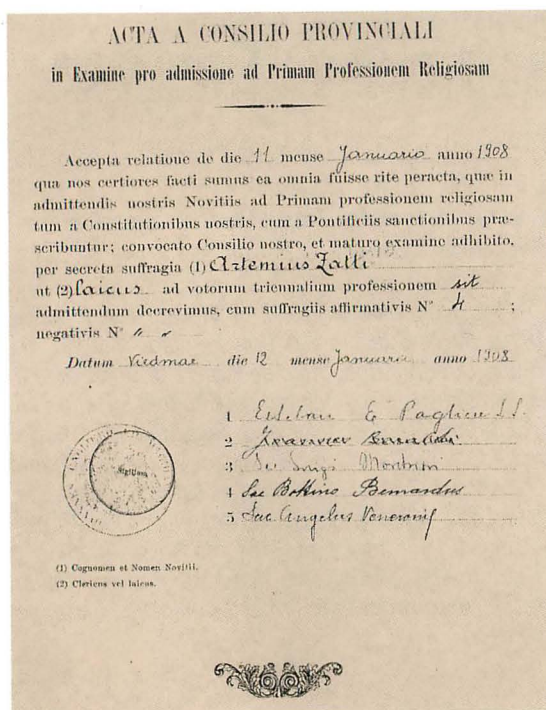 ACTA A CONSILIO PROVINCIALI
in Examine pro admissione ad Primam Professionem Religiosam
Accepta relatione de die 11 mense Januario anno 1908
qua nos certiores facti sumus ea omnia fuisse rite peracta, quæ in
admittendis nostris Novitiis ad Primam professionem religiosam
tum a Constitutionibus nostris, cum a Pontificiis sanctionibus præ-
scribuntur; convocato Consilio nostro, et maturo examine adhibito,
per secreta suffragia (1) Artemius Zatti
ut (2) laicus ad votorum triennalium professionem sit
admittendum decrevimus, cum suffragiis affirmativis Nº 4 ;
negativis Nº " "
Datum Viedmae die 12 mense Januario anno 1908
1 Esteban
2
3 Sac Luigi
4 Sac Bottino Bernardus
5 Sac Angelus
Sigillum
(1) Cognomen et Nomen Novitii.
(2) Clericus vel laicus.